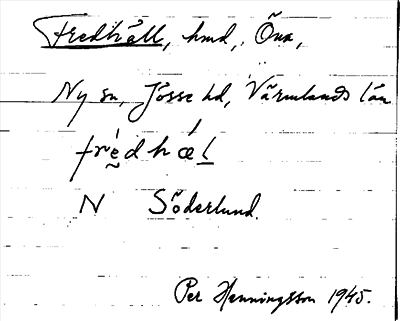 Fredhäll, hmd, Öna,
Ny sn, Jösse hd, Värmlands län
frèdhæ̀l
N Söderlund.
Per Henningsson 1945.